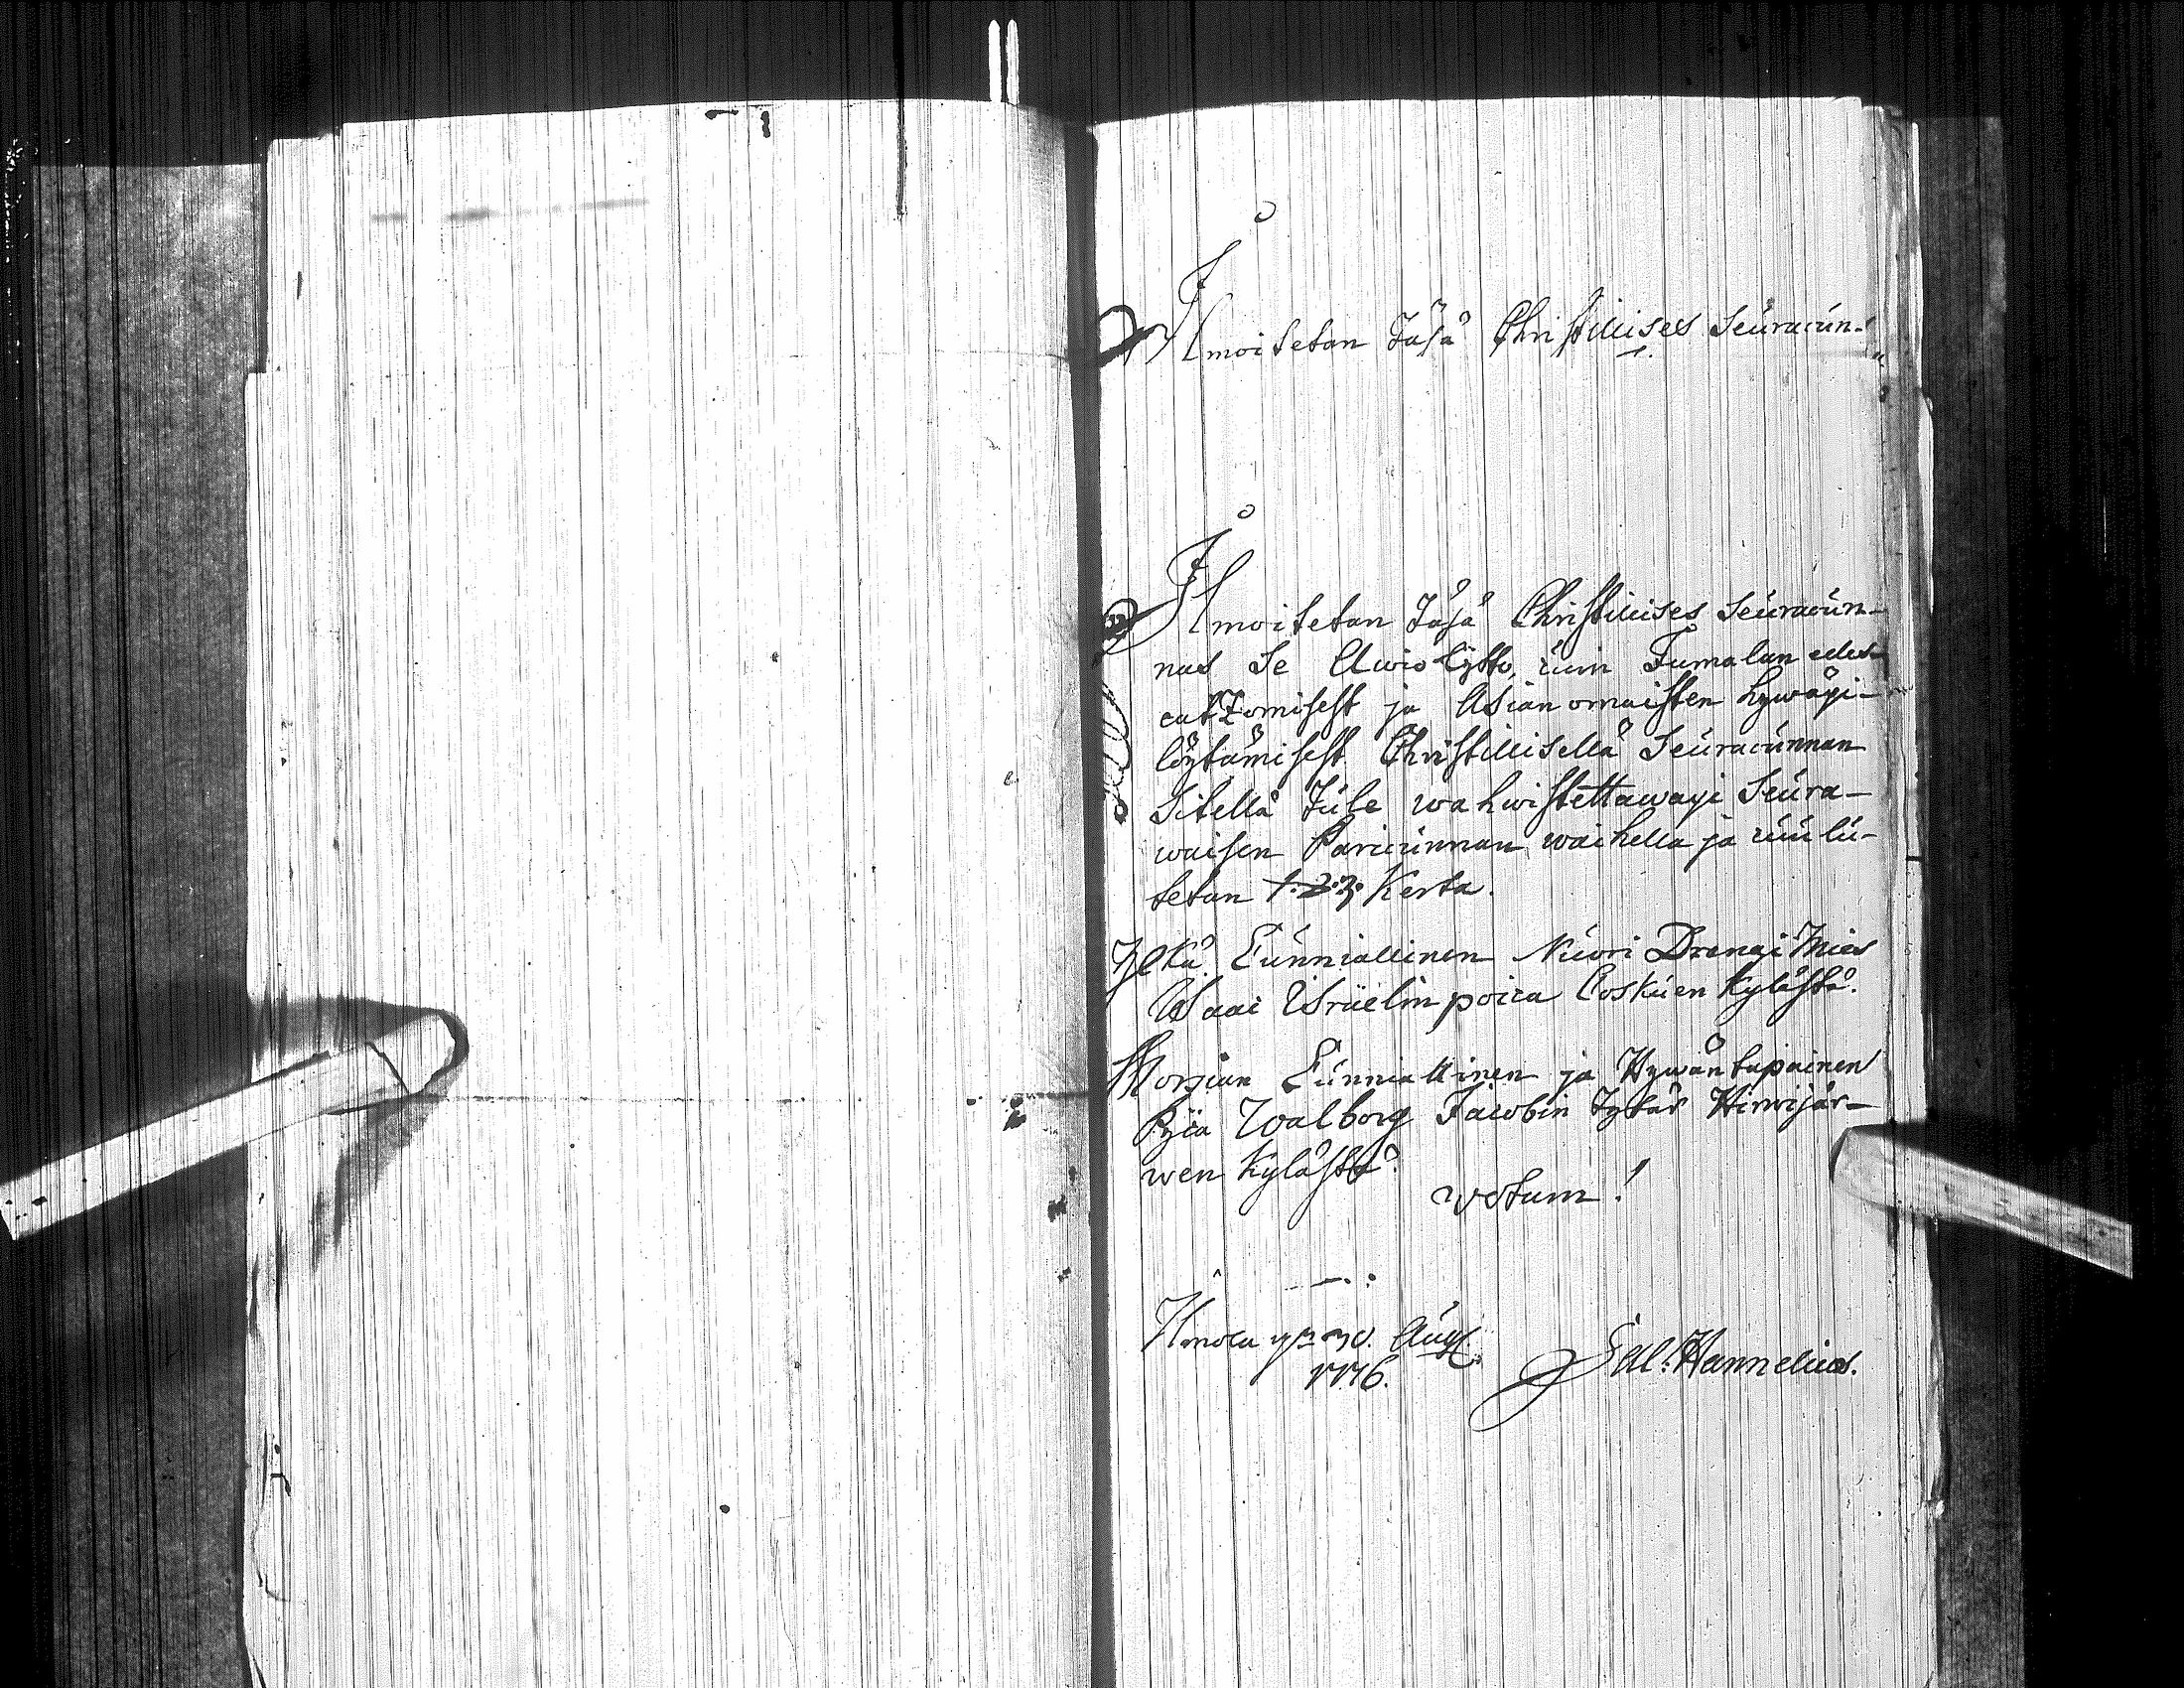 Ilmoitetan Täsä Christillises Seuracun-
Ilmoitetan Täsä Christillises Seuracun-
nas Se Awio Lijtto, cuin Jumalan edes-
catzomisest ja Asianomaisten hywäxi-
löytämisest Christillisellä Seuracunnan
Sitellä Tule wahwistettawaxi Seura-
waisen Paricunnan waihella ja cuulu-
tetan 1. 2. 3. Kerta.
Yljkä Cunniallinen Nuori Drengi Mies
Isaac Israelin poica Coskuen Kylästä.
Morsian Cunniallinen ja Hywäntapainen
Pijca Walborg Jacobin Tytär Hirwijär-
wen Kylästä.
votum!
Ilmola 30. Aug.
1776.
Hannelius.